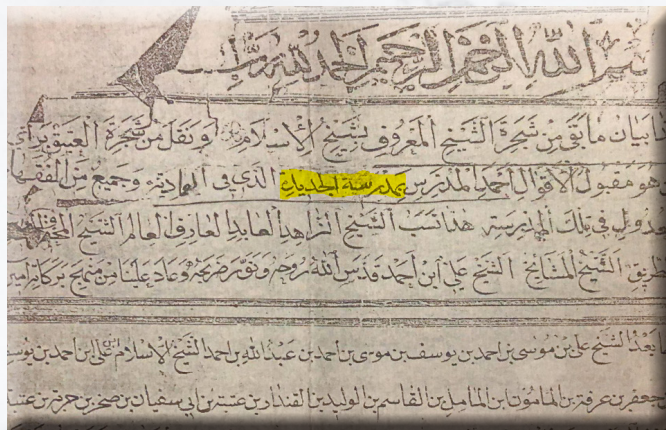 بسم الله الرحمن الرحيم الحمد لله رب
بيان ما بقى من شجرة الشيخ المعروف بشيخ الإسلام ونقل من شجرة العتيق
وهو مقبول الاقوال احمد المدرس بمدرسة الحديثة الذي في وجميع من الفقها
في تلك المدرسة هذا نسب الشيخ الزاهد العابد العارف العالم الشيخ
طريق الشيخ المشايخ الشيخ علي ابن احمد قدس الله روحه ونور ضريحه وعاد علينا من
بعد الشيخ على بن موسى بن احمد بن يوسف بن موسى بن احمد بن عبد الله بن احمد الشيخ الاسلام على ابن احمد بن يوسف
جعفر بن عرفة بن المامون ابن المامل بن القاسم بن الوليد بن بن عتبة بن ابي سفيان بن صخر بن